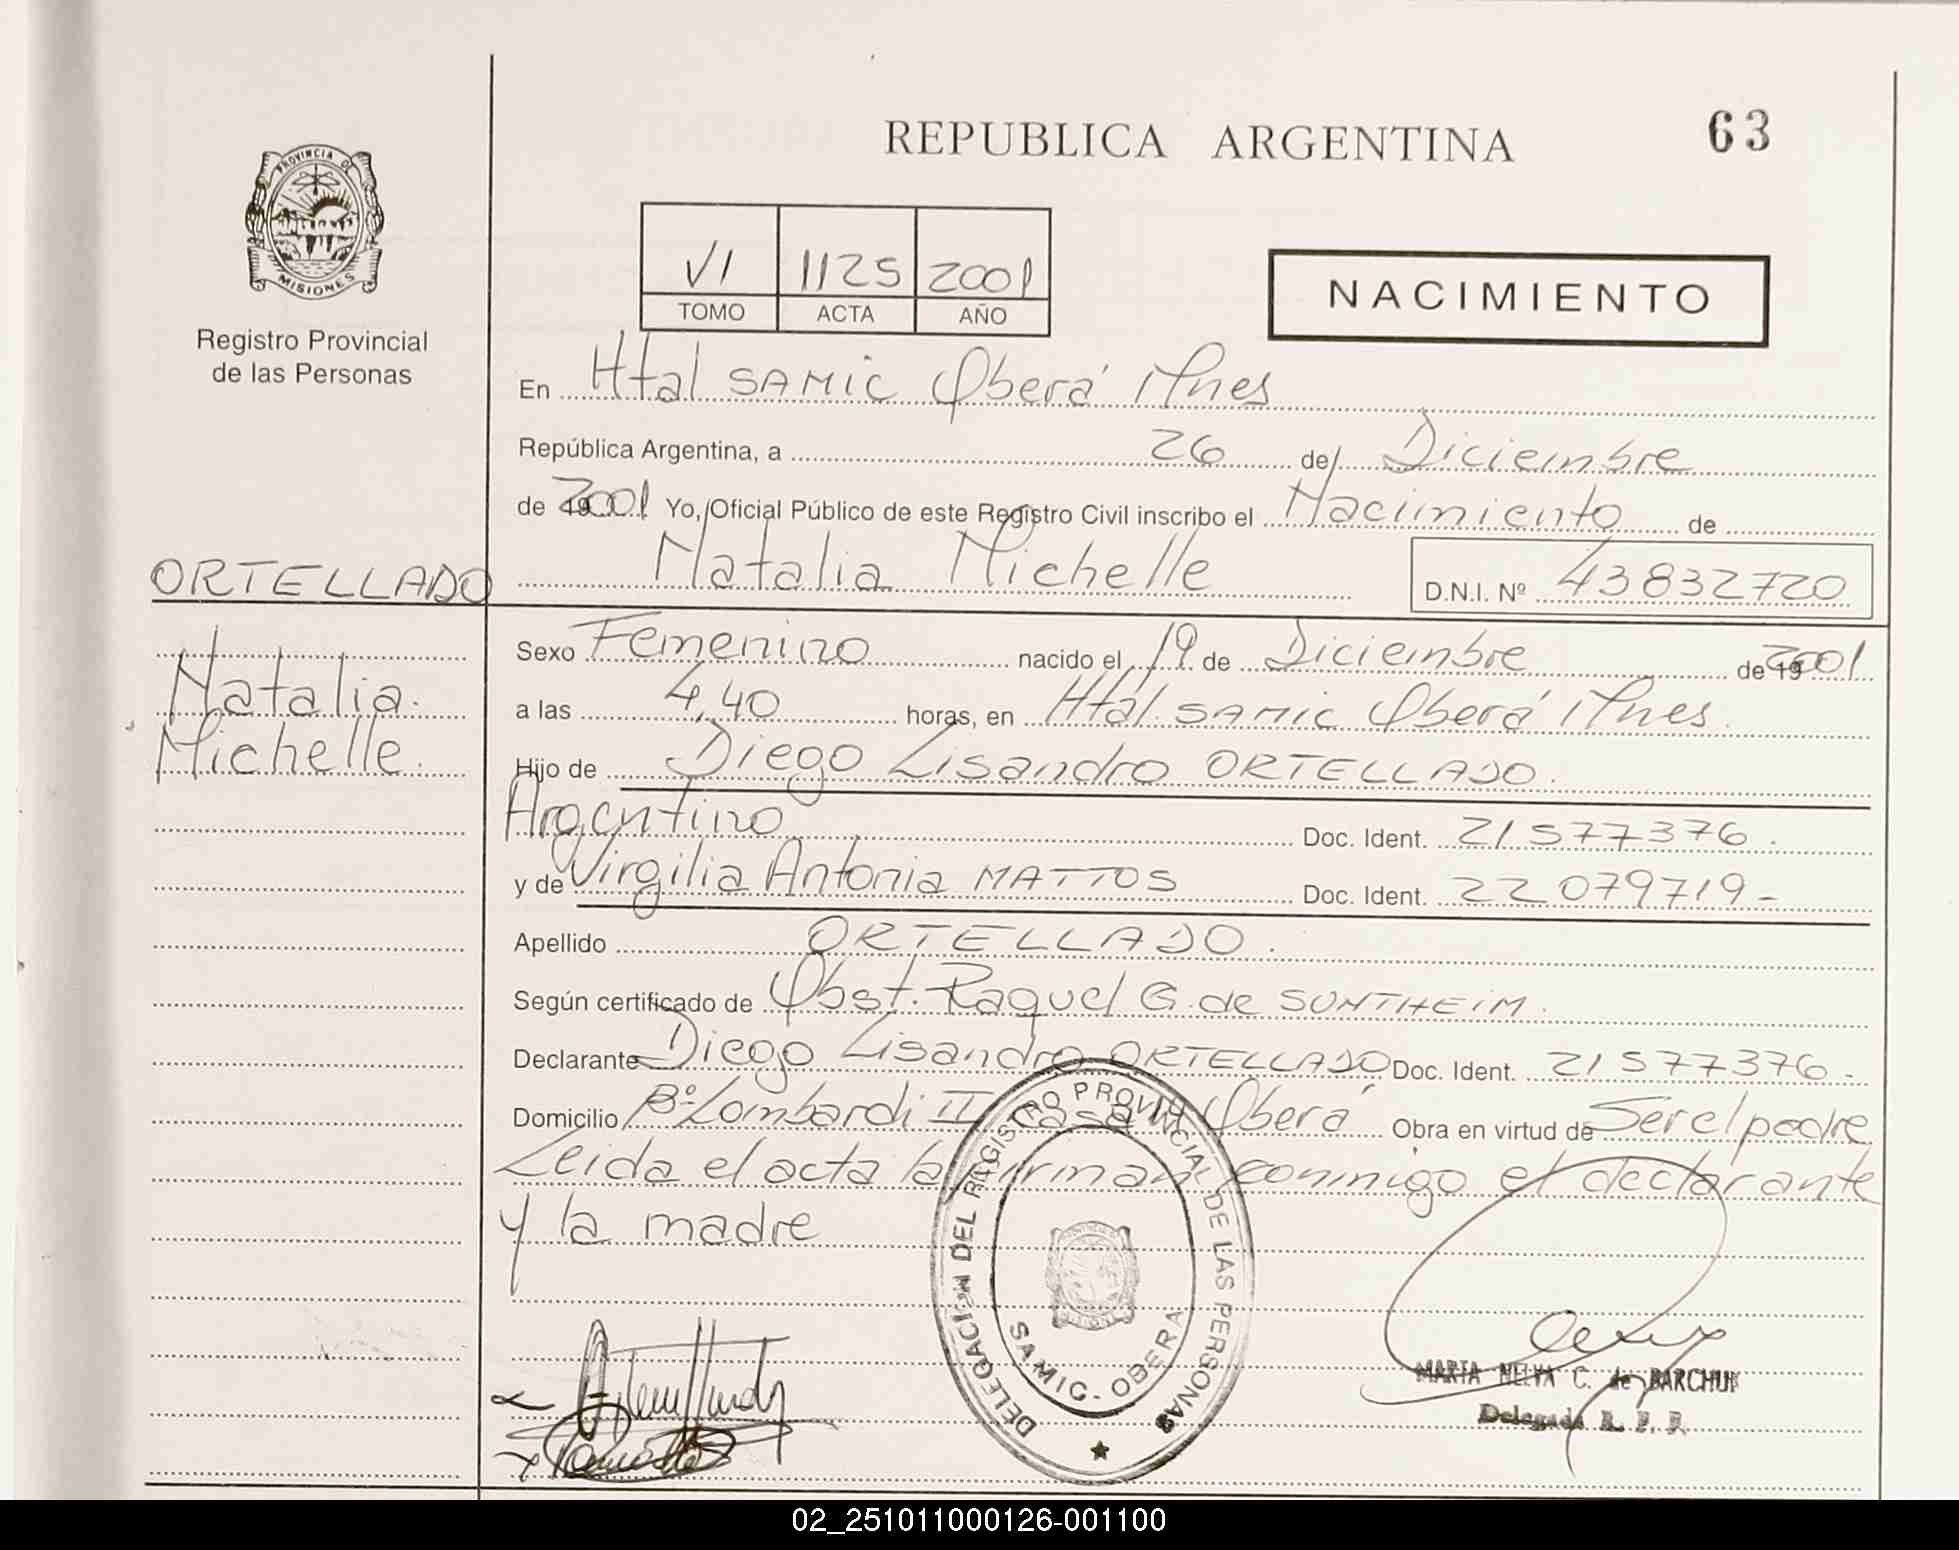 63
REPUBLICA ARGENTINA
PROVINCIA DE
MISIONES
Registro Provincial
de las Personas
VI 1125 2001
TOMO ACTA AÑO
NACIMIENTO
En Htal SAMIC Oberá Mnes
República Argentina, a 26 de Diciembre
de 2001 Yo, Oficial Público de este Registro Civil inscribo el Nacimiento de
Natalia Michelle D.N.I. Nº 43832720
ORTELLADO
Natalia
Michelle
Sexo Femenino nacido el 19 de Diciembre de 2001
a las 4,40 horas, en Htal. SAMIC Oberá Mnes.
Hijo de Diego Lisandro ORTELLADO.
Argentino Doc. Ident. 21577376.
y de Virgilia Antonia MATTOS Doc. Ident. 22079719-
Apellido ORTELLADO.
Según certificado de Obst. Raquel G. de SONTHEIM.
Declarante Diego Lisandro ORTELLADO Doc. Ident. 21577376-
Domicilio Bº Lombardi II casa Oberá Obra en virtud de Ser el padre
Leida el acta la firman conmigo el declarante
y la madre
DELEGACION DEL REGISTRO PROVINCIAL DE LAS PERSONAS
SAMIC - OBERA
MARIA NELVA C. de BARCHUK
Delegada R. P. P.
02_251011000126-001100